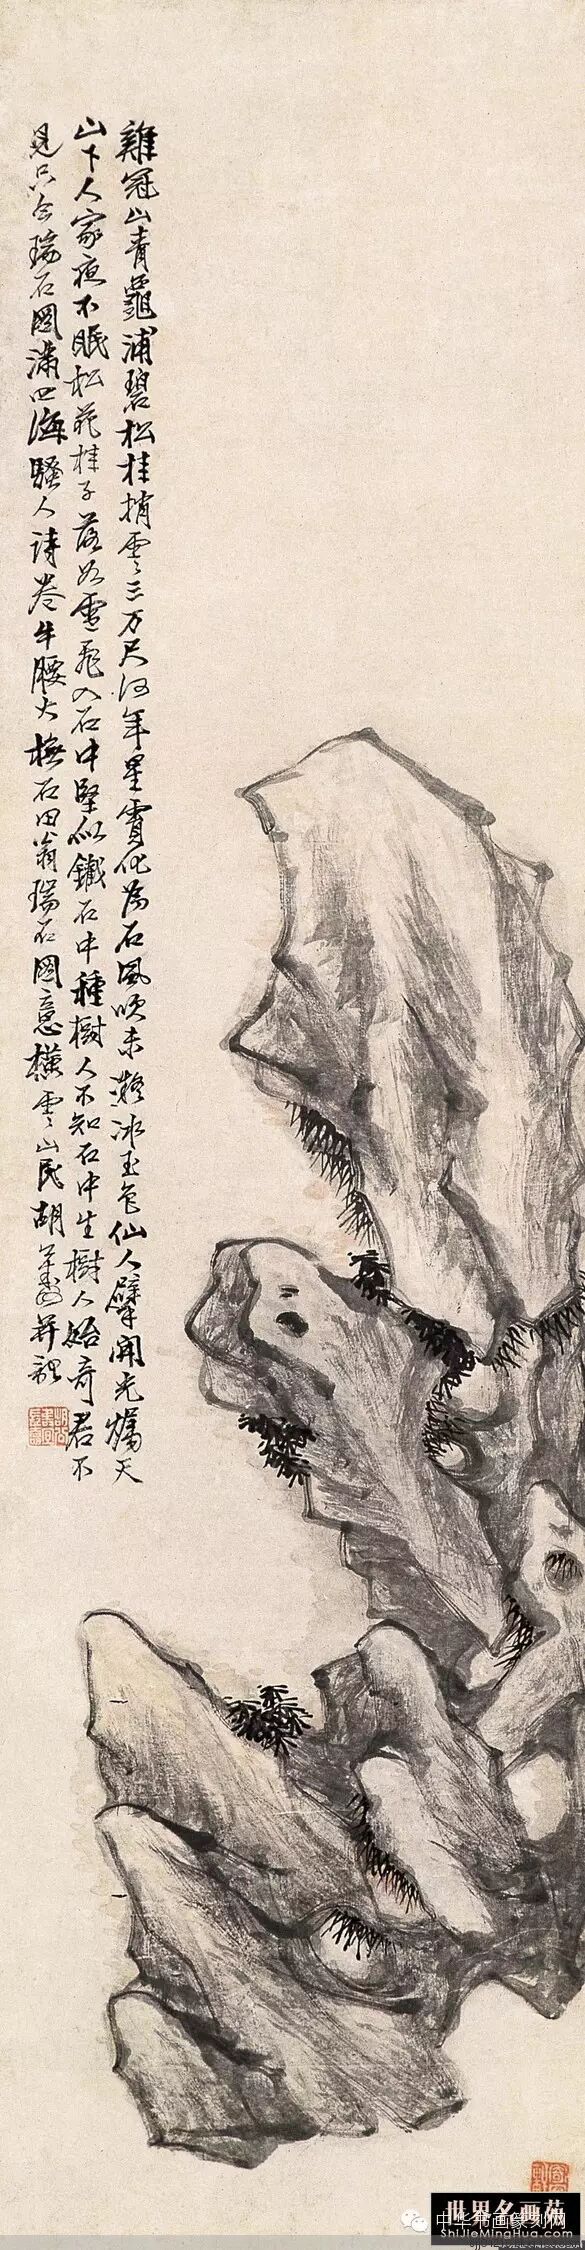 雞冠山青龜浦碧松桂捎雲三万尺何年星賈化為石風吹未凝冰玉色仙人擘開光燭天
山下人家夜不眠松花桂子落如雪飛入石中堅似鐵石中種樹人不知石中生樹人始奇君不
見只今瑞石圖滿四海騷人詩卷牛腰大橅石田翁瑞石圖意橫雲山民胡公壽并記
世界名画苑
中华书画篆刻网
ShiJieMingHua.com